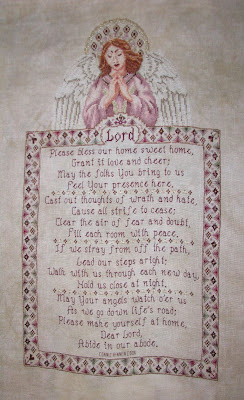 Lord
Please bless our home sweet home,
Grant it love and cheer;
May the folks You bring to us
Feel Your presence here,
Cast out thoughts of wrath and hate,
Cause all strife to cease;
Clear the air of fear and doubt,
Fill each room with peace.
If we stray from off the path,
Lead our steps aright;
Walk with us through each new day,
Hold us close at night.
May Your angels watch o'er us
As we go down life's road;
Please make yourself at home,
Dear Lord,
Abide in our abode.